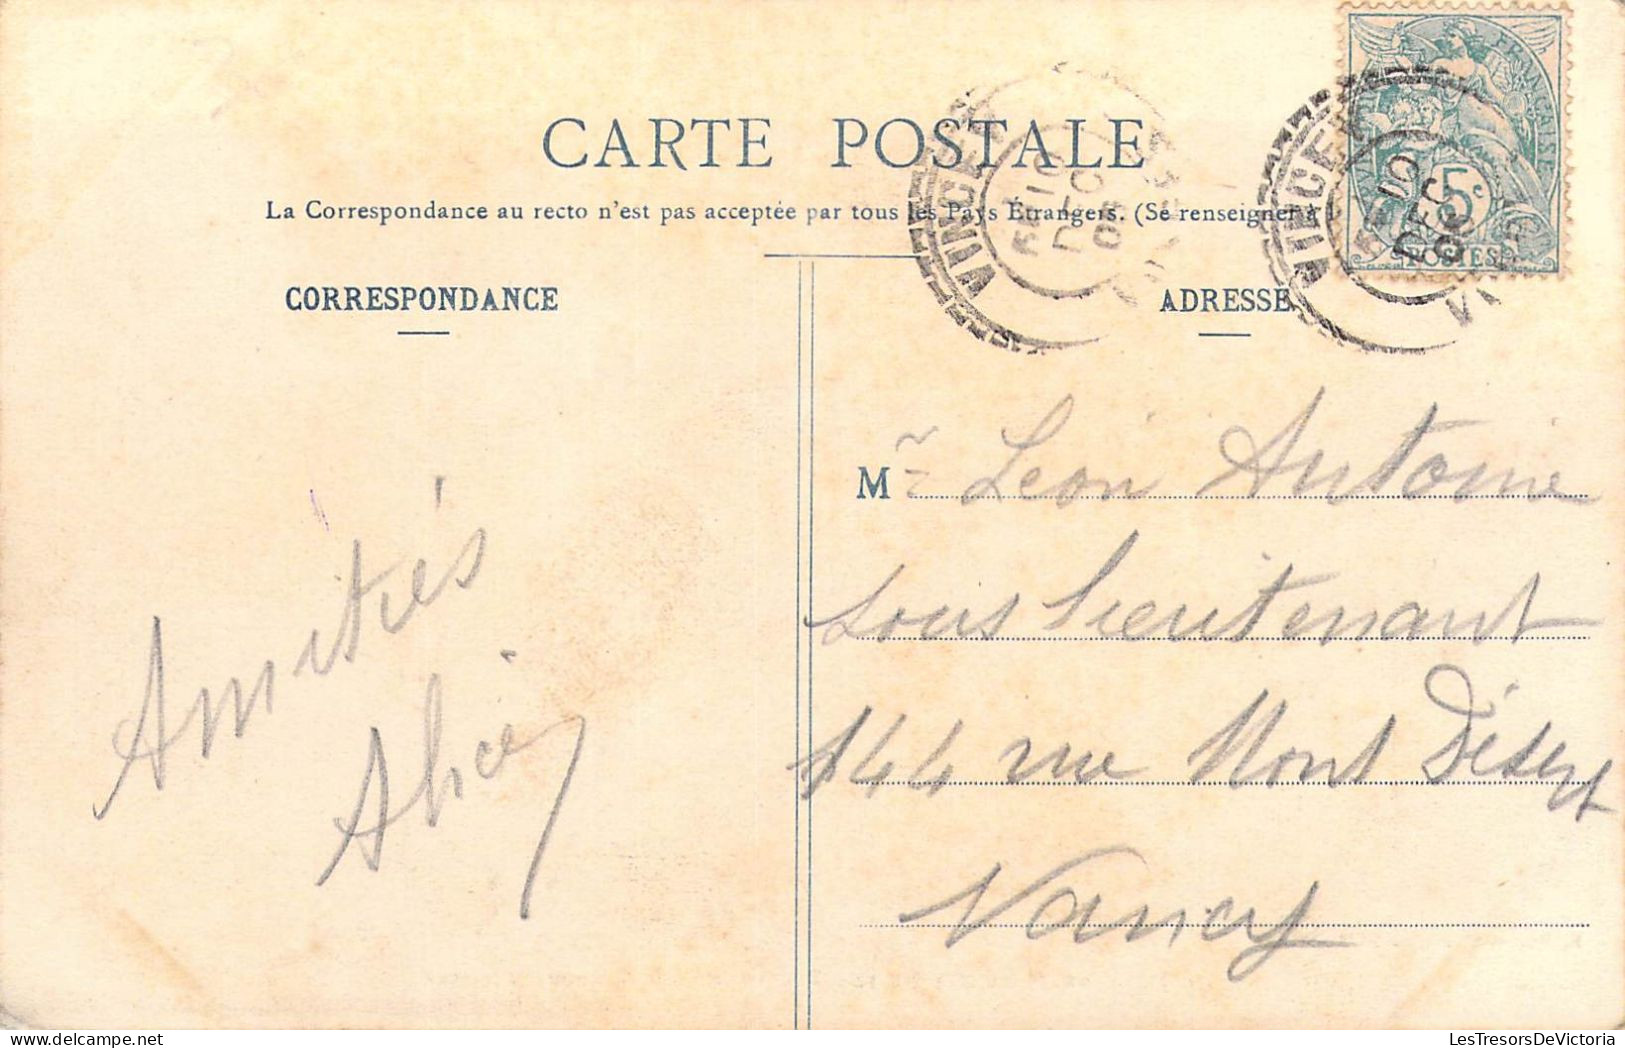 CARTE POSTALE
La Correspondance au recto n'est pas acceptée par tous les Pays Étrangers. (Se renseigner à
CORRESPONDANCE
ADRESSE
FRANÇAISE
5c
POSTES
10
DEC
Mr Léon Antoine
sous lieutenant
144 rue Mont Désert
Nancy
Amitiés
Alice
LesTresorsDeVictoria